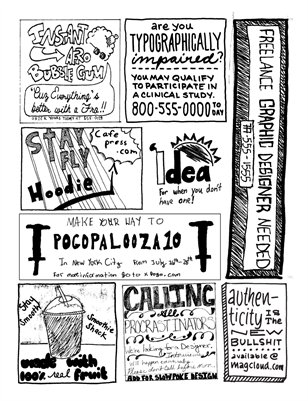 INSTANT
AFRO
BUBBLE GUM
"Cuz Everything's
better with a Fro!!"
are you
TYPOGRAPHICALLY
impaired?
YOU MAY QUALIFY
TO PARTICIPATE IN
A CLINICAL STUDY.
800-555-0000 TO
DAY
FREELANCE GRAPHIC DESIGNER NEEDED
777-555-1555
STAY
FLY
Hoodie
Cafe
press
.com
idea
For when you don't
have one!
MAKE YOUR WAY TO
POCOPALOOZA10
In New York City from July 26th-28th
For more information Go to
Stay
Smooth
Smoothie
Shack
made with
100% real fruit
CALLING
All
PROCRASTINATORS
We're looking for a Designer.
ADD FOR SLOWPOKE DESIGN
authen-
ticity IS
THE
NEW
BULLSHIT
available @
magcloud.com